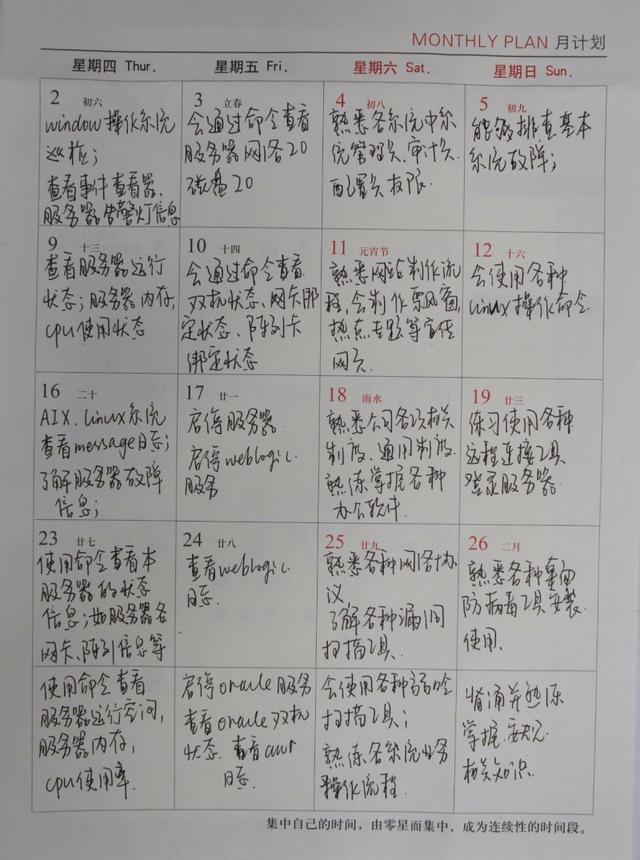 MONTHLY PLAN 月计划
星期四 Thur. 星期五 Fri. 星期六 Sat. 星期日 Sun.
2 初六
window操作系统
巡检；
查看事件查看器、
服务器告警灯信息
3 立春
会通过命令查看
服务器网络IO
磁盘IO
4 初八
熟悉各系统中系
统管理员、审计员、
配置员权限.
5 初九
能够排查基本
系统故障；
9 十三
查看服务器运行
状态；服务器内存,
cpu使用状态
10 十四
会通过命令查看
双机状态、网卡绑
定状态、阵列卡
绑定状态
11 元宵节
熟悉网站制作流
程,会制作飘窗,
热点专题等宣传
网页.
12 十六
会使用各种
linux操作命令.
16 二十
AIX、Linux系统
查看message日志；
了解服务器故障
信息；
17 廿一
启停服务器
启停weblogic.
服务
18 雨水
熟悉公司各项相关
制度、通用制度.
熟练掌握各种
办公软件.
19 廿三
练习使用各种
远程连接工具
登录服务器.
23 廿七
使用命令查看本
服务器的状态
信息；如服务器各
网卡、阵列信息等
24 廿八
查看weblogic.
日志.
25 廿九
熟悉各种网络协
议
了解各种漏洞
扫描工具.
26 二月
熟悉各种桌面
防病毒工具安装.
使用.
使用命令查看
服务器运行空间,
服务器内存,
cpu使用率.
启停oracle服务
查看oracle双机
状态.查看awr
日志.
会使用各种弱口令
扫描工具；
熟练各系统业务
操作流程.
背诵并熟练
掌握
相关知识.
集中自己的时间，由零星而集中，成为连续性的时间段。